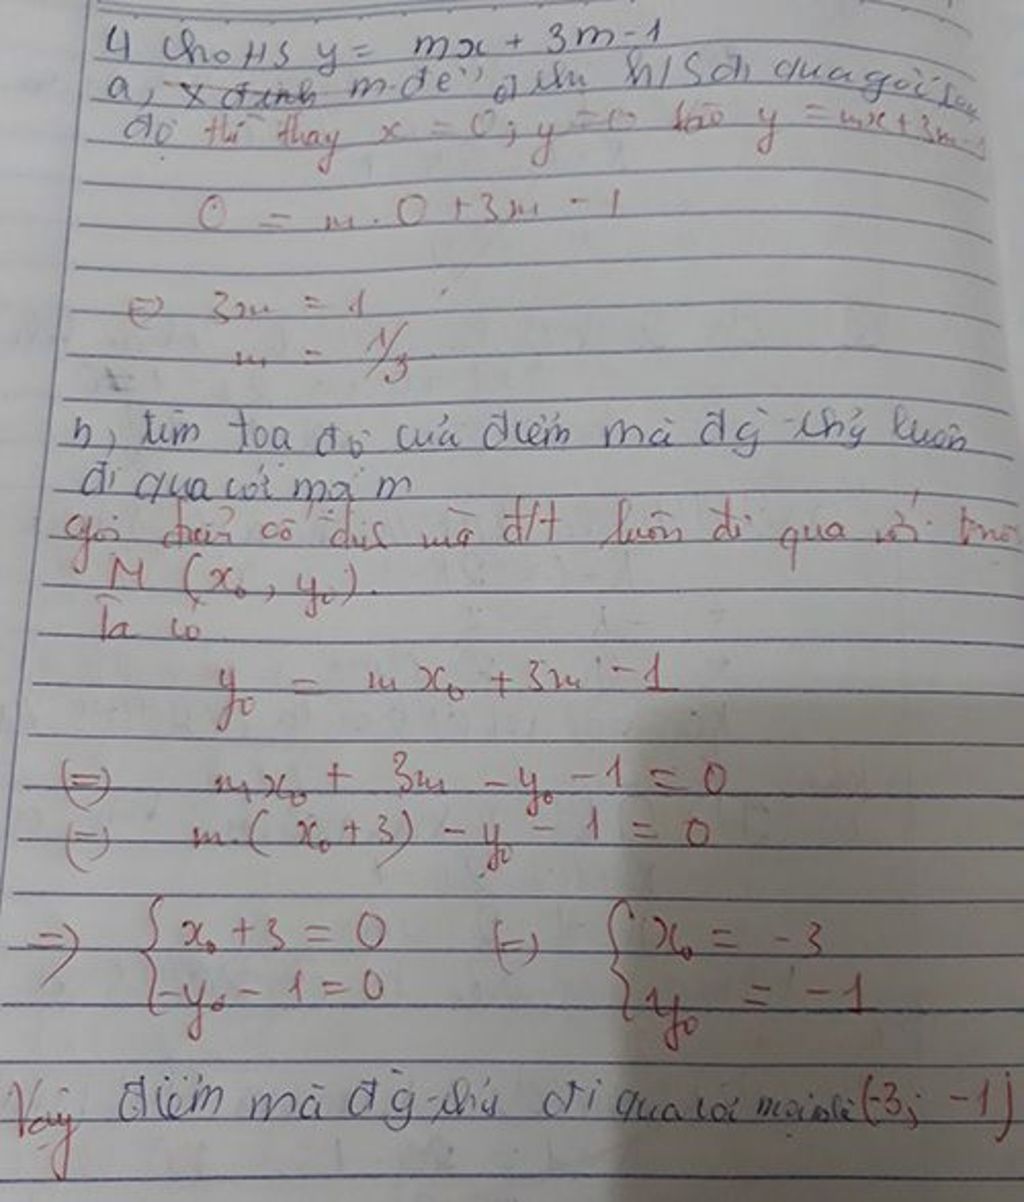 4 Cho HS y = mx + 3m - 1
a, x định m để đ thị h/s đi qua gốc tọa
độ thì thay x = 0; y = 0 vào y = mx + 3m - 1
0 = m . 0 + 3m - 1
⇔ 3m = 1
m = 1/3
b, tìm tọa độ của điểm mà đg thg luôn
đi qua với mọi m
gọi điểm cố đị mà đt luôn đi qua với
M (x₀, y₀).
Ta có
y₀ = m x₀ + 3m - 1
(=) mx₀ + 3m - y₀ - 1 = 0
(=) m.(x₀ + 3) - y₀ - 1 = 0
=> { x₀ + 3 = 0 (=) { x₀ = -3
{ -y₀ - 1 = 0 { y₀ = -1
Vậy điểm mà đg thg đi qua với mọi là (-3; -1)